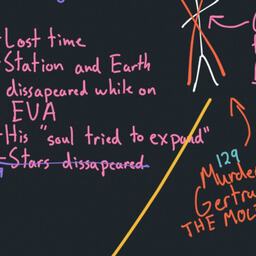 -Lost time
-Station and Earth
dissapeared while on
EVA
-His "soul tried to expand"
-Stars dissapeared
129
THE MOLE